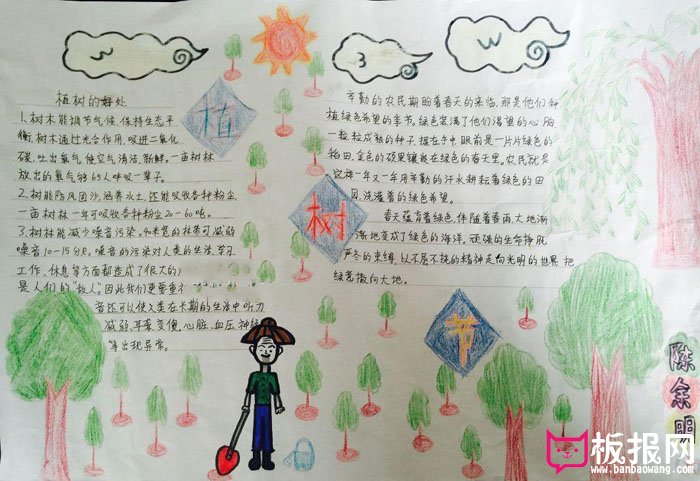 植树的好处
1.树木能调节气候,保持生态平
衡.树木通过光合作用,吸进二氧化
碳,吐出氧气,使空气清洁、新鲜。一亩树林
放出的氧气够的人呼吸一辈子。
2.树能防风固沙,涵养水土,还能吸收各种粉尘,
一亩树林一年可吸收各种粉尘20-60吨。
3.树林能减少噪音污染。40米宽的林带可减弱
噪音10-15分贝。噪音的污染对人类的生活、学习
工作、休息等方面都造成了很大的
是人们的"敌人",因此我们更要重
音还可以使人类在长期的生活中听力
减弱,耳聋、变傻,心脏,血压,神经
等出现异常。
植
树
节
3
W
辛勤的农民期盼着春天的来临,那是他们种
植绿色希望的季节,绿色装满了他们渴望的心胸,
一粒粒成熟的种子,握在手中,眼前是一片片绿色的
稻田,金色的硕果镶嵌在绿色的春天里。农民就是
这样一年又一年用辛勤的汗水耕耘着绿色的田
园,浇灌着绿色的希望。
春天蕴育着绿色,伴随着春雨,大地渐
渐地变成了绿色的海洋。顽强的生命挣脱
严冬的束缚,以不屈不挠的精神走向光明的世界,把
绿意撒向大地。
陈余
板报网
www.banbaowang.com